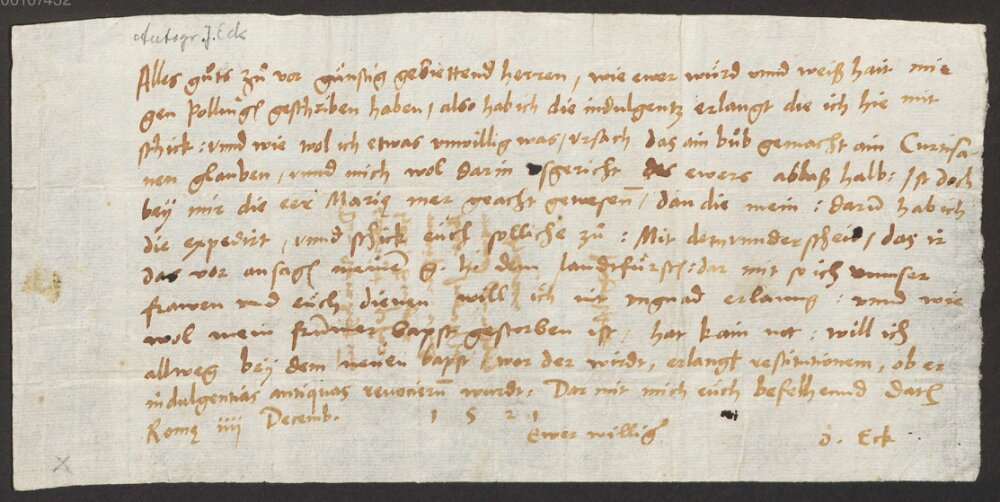 00107432
Autogr. J. Eck
Alles gůts zů vor günstig gebiettend herren, wie ewer würd vnnd weiß hait mir
gen Polling geschriben haben, also hab ich die indulgentz erlangt die ich hie mit
schick: vnnd wie wol ich etwas vnwillig was, vrsach das ain bůb gemacht ain Curtisa-
nen glauben, vnnd mich wol darin sgericht des ewers ablaß halb: ist doch
bey mir die eer Marię mer geacht gewesenn, dan die mein: darum̃ hab ich
die expedirt, vnnd schick eüch solliche zů: Mit dem vnderscheid, das ir
das vor ansagen meinem g. he dem landsfürsten: dar mit so ich vnnser
frawen vnd eüch dienen will ich nit vngnad erlang: vnnd wie
wol mein frummer bapst gestorben ist, hat kain not: will ich
allweg bey dem neüen bapst, wor der wirdt, erlangen restitutionem, ob er
indulgentias antiquas revocieren wurdt: Dar mit mich eüch befelhennd Daten
Romę iiii Decemb. 1521
Ewer willig
D. Eck